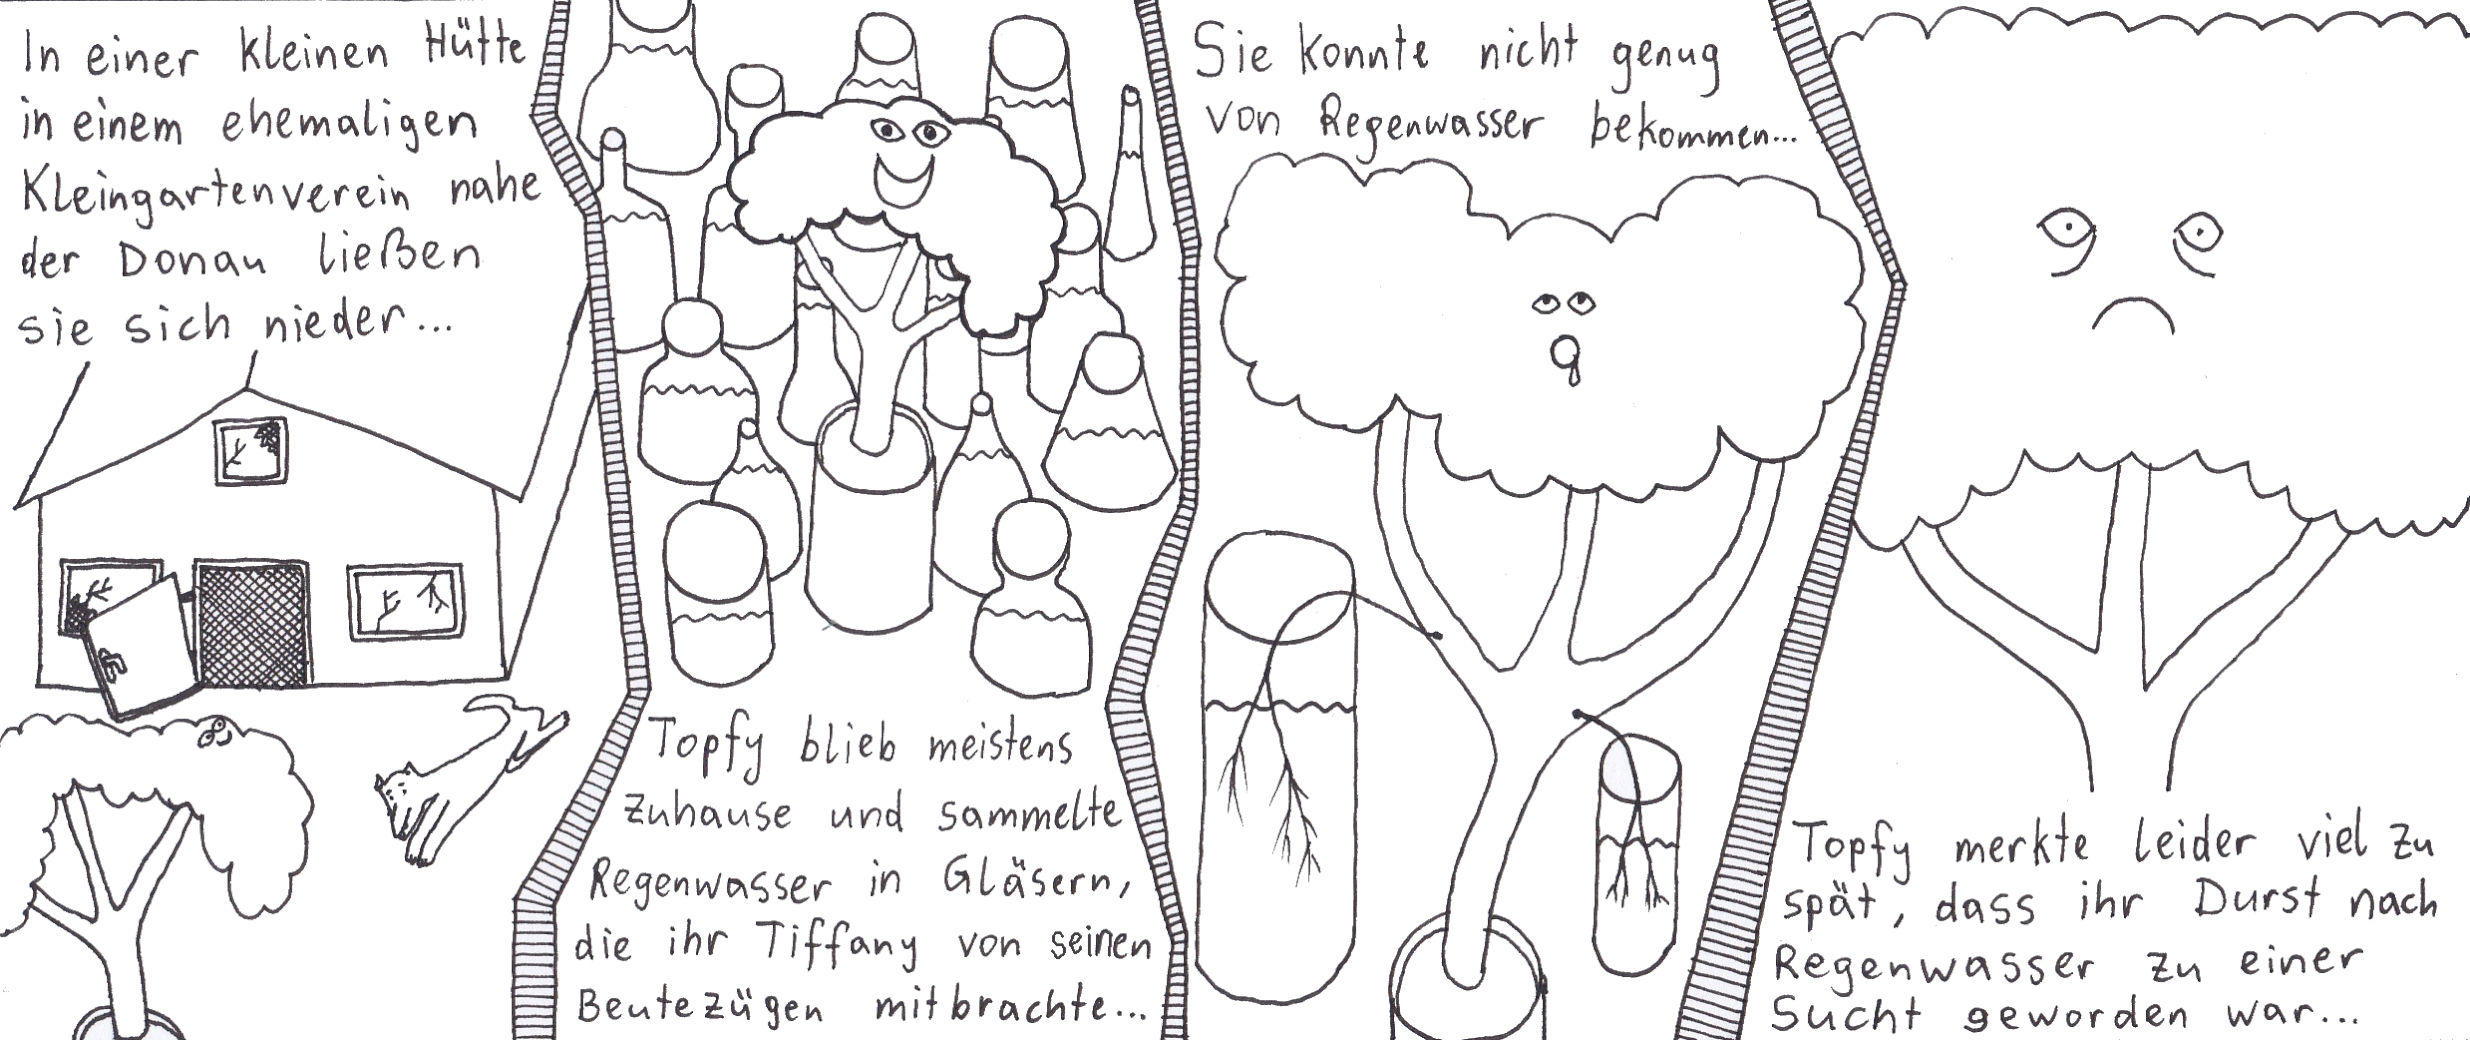 In einer kleinen Hütte
in einem ehemaligen
Kleingartenverein nahe
der Donau ließen
sie sich nieder...
Topfy blieb meistens
zuhause und sammelte
Regenwasser in Gläsern,
die ihr Tiffany von seinen
Beutezügen mitbrachte...
Sie konnte nicht genug
von Regenwasser bekommen...
Topfy merkte leider viel zu
spät, dass ihr Durst nach
Regenwasser zu einer
Sucht geworden war...